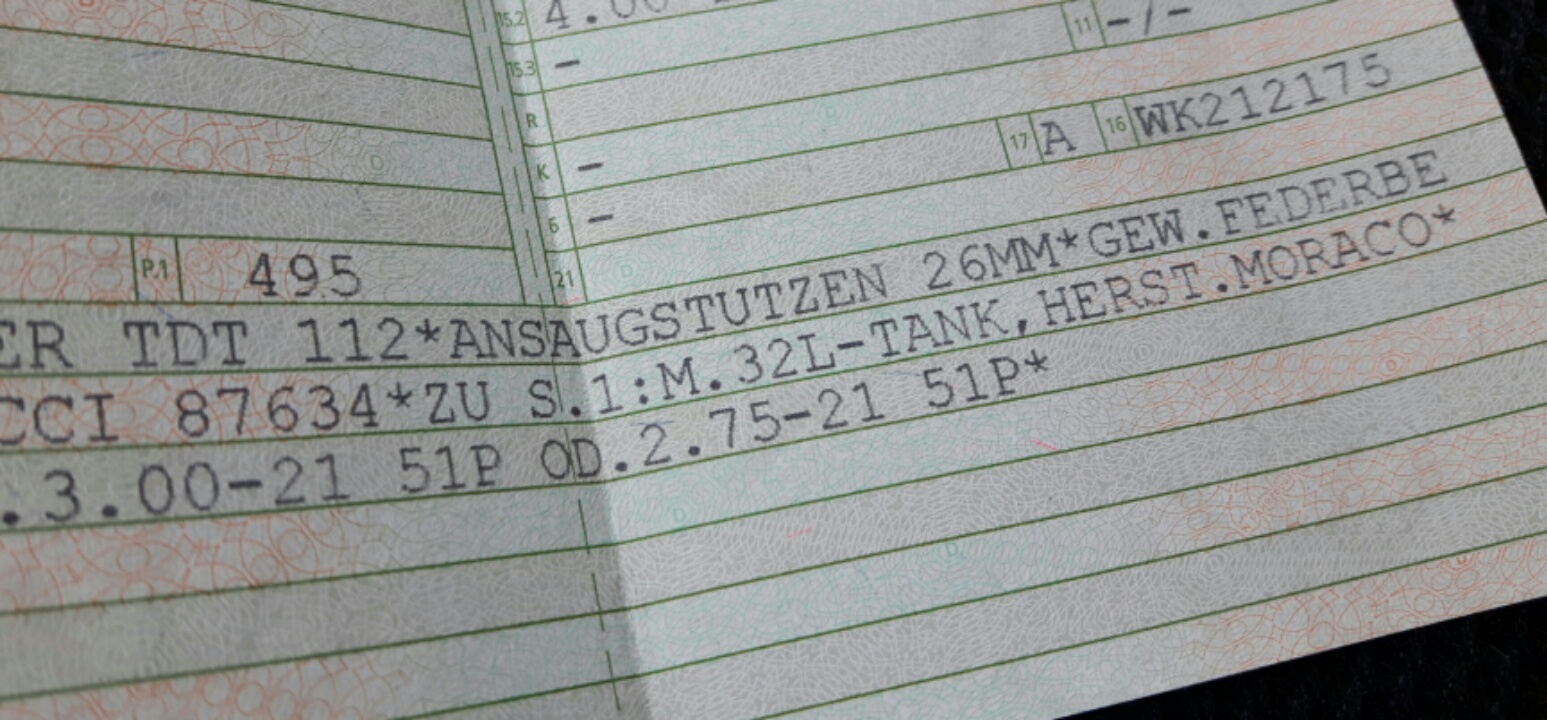 15.2 4.00
11 -/-
15.3 -
R
K - 17 A 16 WK212175
6 -
P.1 495 21
ER TDT 112*ANSAUGSTUTZEN 26MM*GEW.FEDERBE
CCI 87634*ZU S.1:M.32L-TANK,HERST.MORACO*
.3.00-21 51P OD.2.75-21 51P*